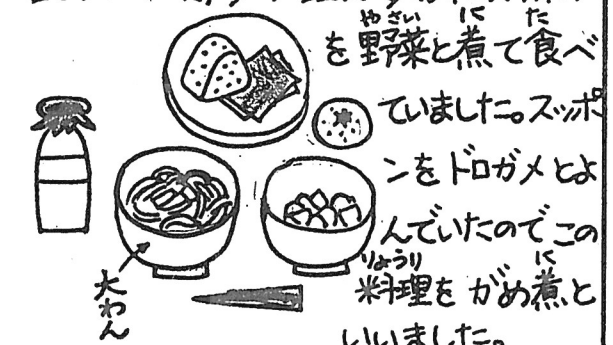 を野菜と煮て食べ
ていました。スッポ
ンをドロガメとよ
んでいたのでこの
料理をがめ煮と
いいました。
大わん